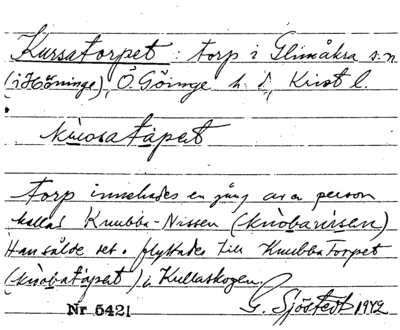 Kursatorpet : torp i Glimåkra s:n
(i Höninge), Ö. Göinge h. d., Krist l.
kùosatàpeut
torp innehades en gång av en person
kallad Knubba-Nissen (knùobanisen)
Han sålde det o. flyttades till Knubbatorpet
(knùobatàpeut) i Kullaskogen.
Nr 5421 G. Sjöstedt 1942